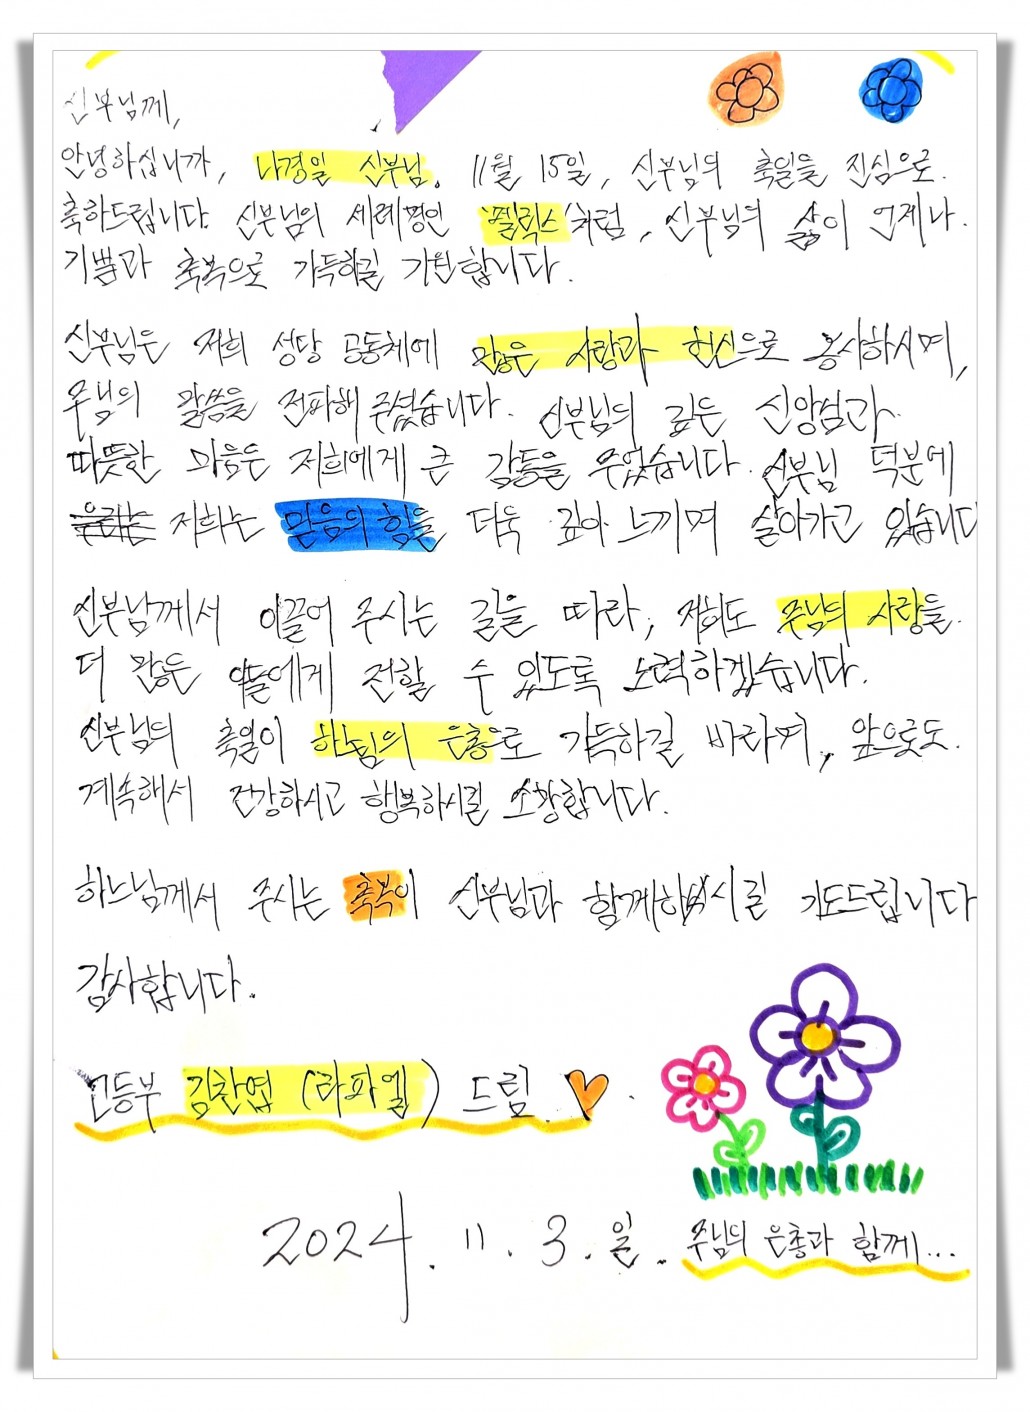 신부님께,
안녕하십니까, 나경일 신부님. 11월 15일, 신부님의 축일을 진심으로
축하드립니다. 신부님의 세례명인 '펠릭스'처럼, 신부님의 삶이 언제나
기쁨과 축복으로 가득하길 기원합니다.
신부님은 저희 성당 공동체에 많은 사랑과 헌신으로 봉사하시며,
주님의 말씀을 전파해 주셨습니다. 신부님의 깊은 신앙심과
따뜻한 마음은 저희에게 큰 감동을 주었습니다. 신부님 덕분에
우리는 저희는 믿음의 힘을 더욱 깊이 느끼며 살아가고 있습니다
신부님께서 이끌어 주시는 길을 따라, 저희도 주님의 사랑을
더 많은 에게 전할 수 있도록 노력하겠습니다.
신부님의 축일이 하느님의 은총으로 가득하길 바라며, 앞으로도
계속해서 건강하시고 행복하시길 소망합니다.
하느님께서 주시는 축복이 신부님과 기도드립니다
감사합니다.
고등부 김찬엽 (라파엘) 드림
2024. 11. 3. 일. 주님의 은총과 함께...